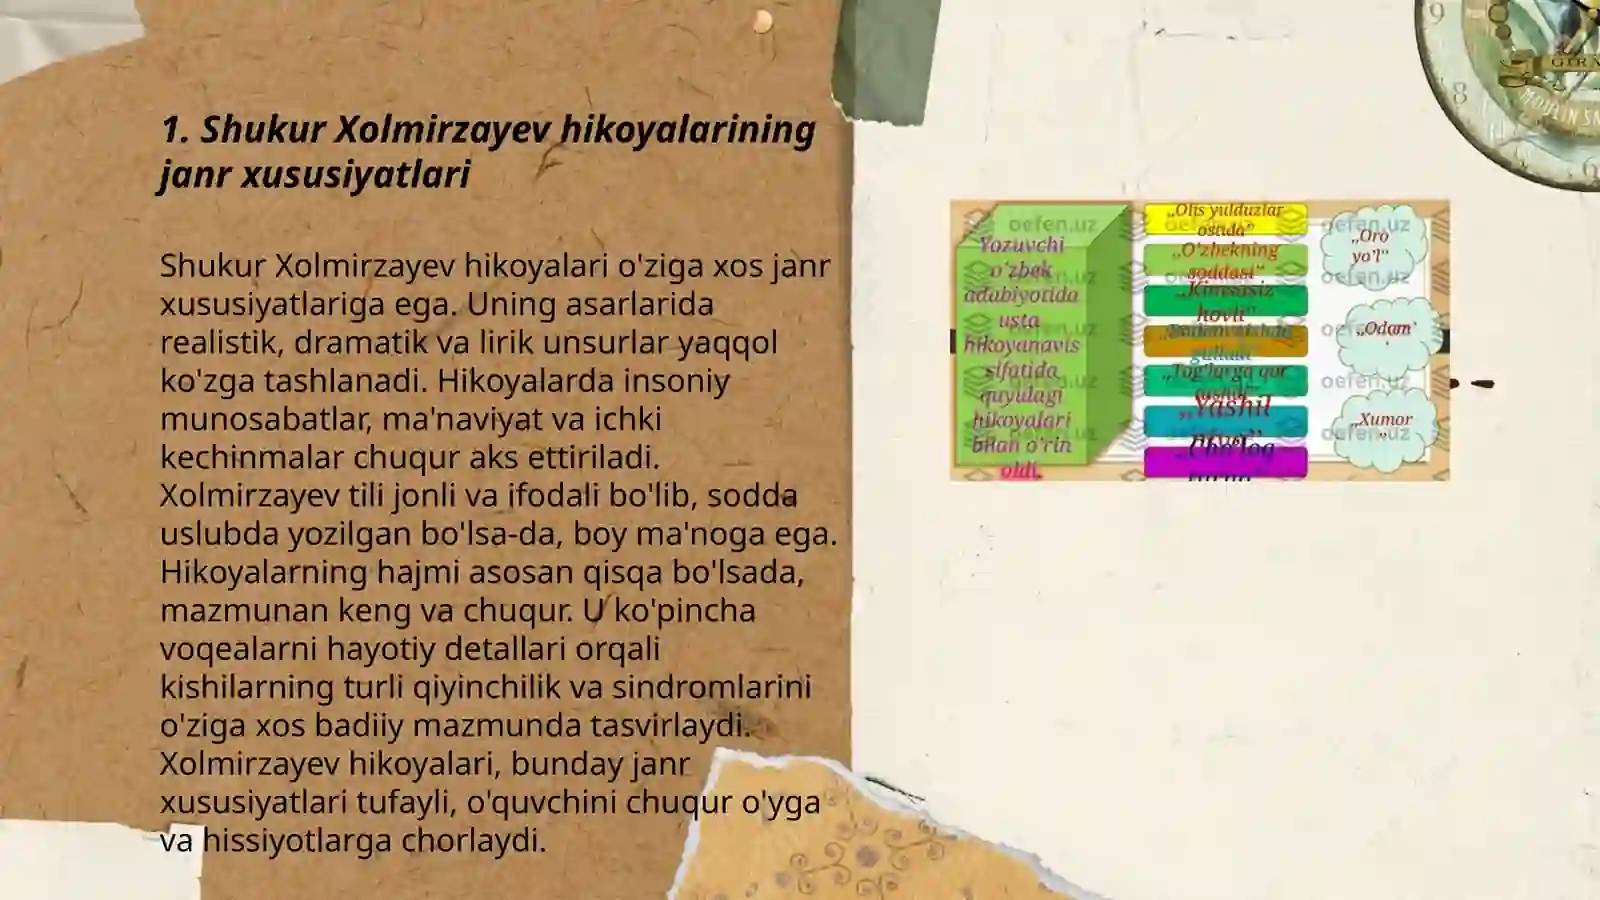 1. Shukur Xolmirzayev hikoyalarining
janr xususiyatlari
Shukur Xolmirzayev hikoyalari o'ziga xos janr
xususiyatlariga ega. Uning asarlarida
realistik, dramatik va lirik unsurlar yaqqol
ko'zga tashlanadi. Hikoyalarda insoniy
munosabatlar, ma'naviyat va ichki
kechinmalar chuqur aks ettiriladi.
Xolmirzayev tili jonli va ifodali bo'lib, sodda
uslubda yozilgan bo'lsa-da, boy ma'noga ega.
Hikoyalarning hajmi asosan qisqa bo'lsada,
mazmunan keng va chuqur. U ko'pincha
voqealarni hayotiy detallari orqali
kishilarning turli qiyinchilik va sindromlarini
o'ziga xos badiiy mazmunda tasvirlaydi.
Xolmirzayev hikoyalari, bunday janr
xususiyatlari tufayli, o'quvchini chuqur o'yga
va hissiyotlarga chorlaydi.
Yozuvchi
o'zbek
adabiyotida
usta
hikoyanavis
sifatida
quyidagi
hikoyalari
bilan o'rin
oldi.
„Olis yulduzlar
ostida"
„O'zbekning
soddasi"
„Kimsasiz
hovli"
„Tog'larga qor
„Yashil
„Cho'loq
„Oro
yo'l"
„Odam'
'
„Xumor
"
oefen.uz
9
8
6
MOULIN